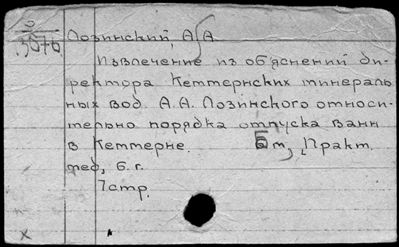 3
3076
Лозинский, А А.
Извлечение из объяснений ди-
ректора Кеммернских минераль
ных вод. А.А. Лозинского относи-
тельно порядка отпуска ванн
в Кеммерне. Б м, Практ.
лед, б. г.
7стр.
х